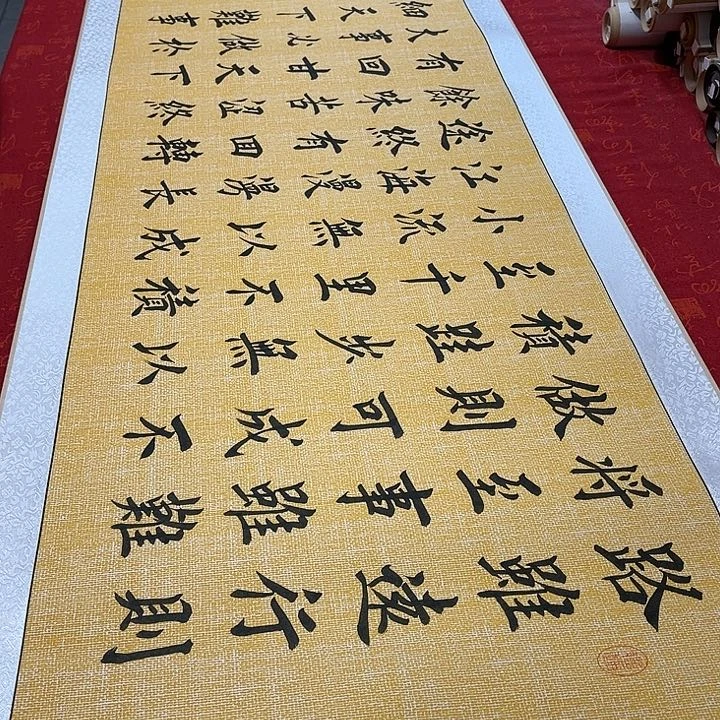 路雖遠行則
将至事雖難
做則可成不
積跬步無以
至千里不積
小流無以成
江海漫漫長
途終有回轉
餘味苦澀終
有回甘天下
大事必做於
細天下難事